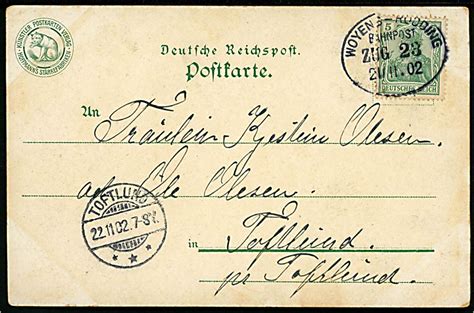 KÜNSTLER POSTKARTEN VERLAG
HOFFMANNS STÄRKEFABRIKEN
Deutsche Reichspost.
Postkarte.
WOYENS RÖDDING
BAHNPOST
ZUG 23
.11.02
5
DEUTSCHES REICH
An
Fräulein Kjestein Olesen.
Ole Olesen.
TOFTLUND
22.11.02.7-8V.
in Toftlund.
pr Toftlund.